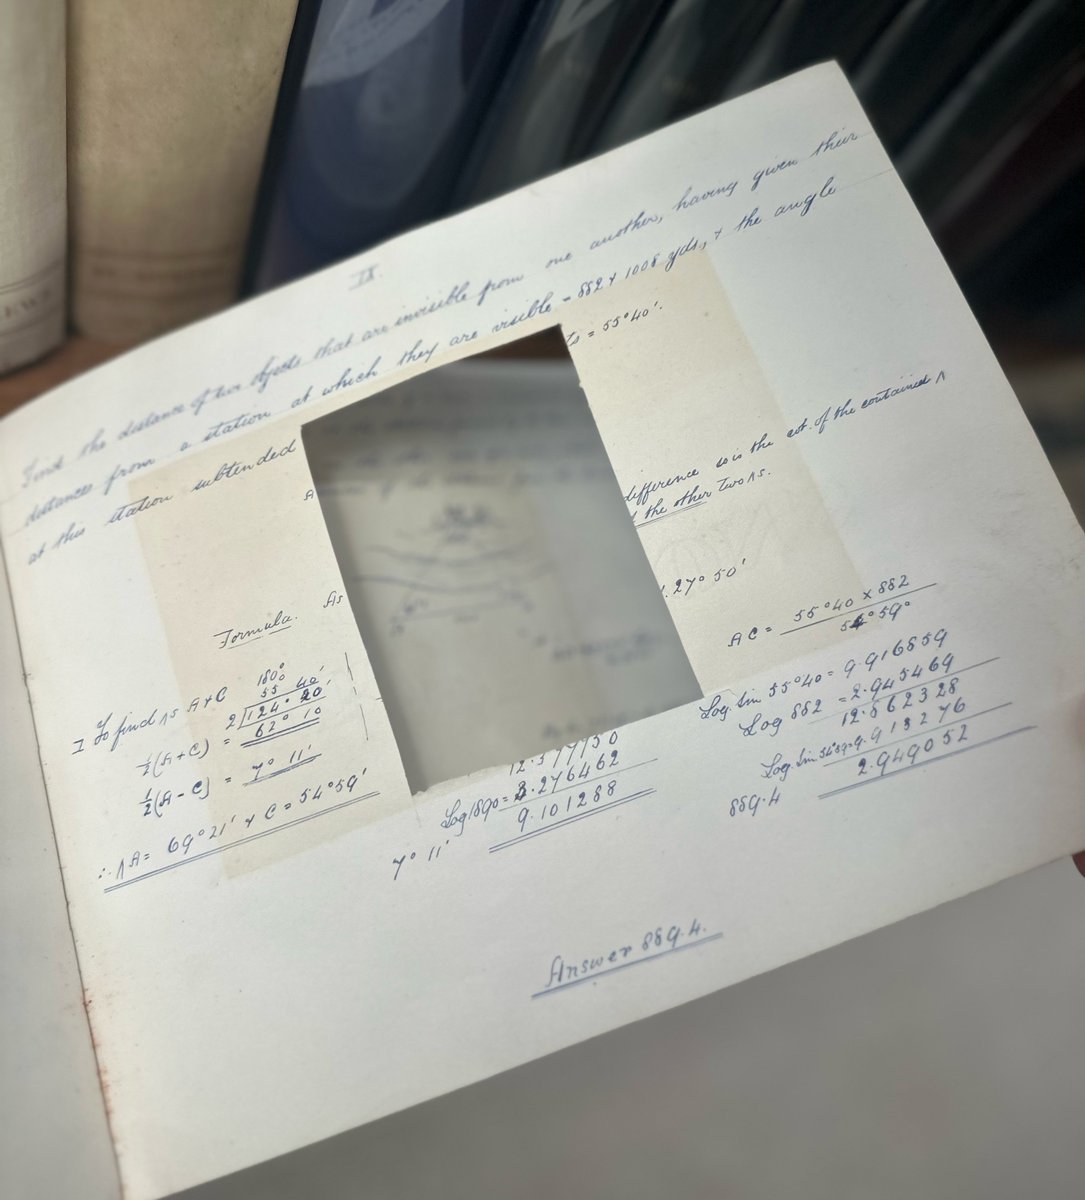 IX.
Find the distance of two objects that are invisible from one another, having given their
distances from a station at which they are visible = 882 & 1008 yds, & the angle
at this station subtended
ts = 55° 40'.
A
difference so is the cot. of the contained ∧
the other two ∧s.
Formula. As
27° 50'
I To find ∧s A & C
180°
55 40'
2)124° 20'
½(A + C) = 62° 10
½(A - C) = 7° 11'
∴ ∧A = 69° 21' & C = 54° 59'
12.577750
Log 1890 = 3.276462
9.101288
7° 11'
AC = 55° 40 × 882
54° 59°
Log. Sin 55° 40 = 9.916859
Log 882 = 2.945469
12.862328
Log. Sin 54° 59 = 9.913276
2.949052
889.4
Answer 889.4.